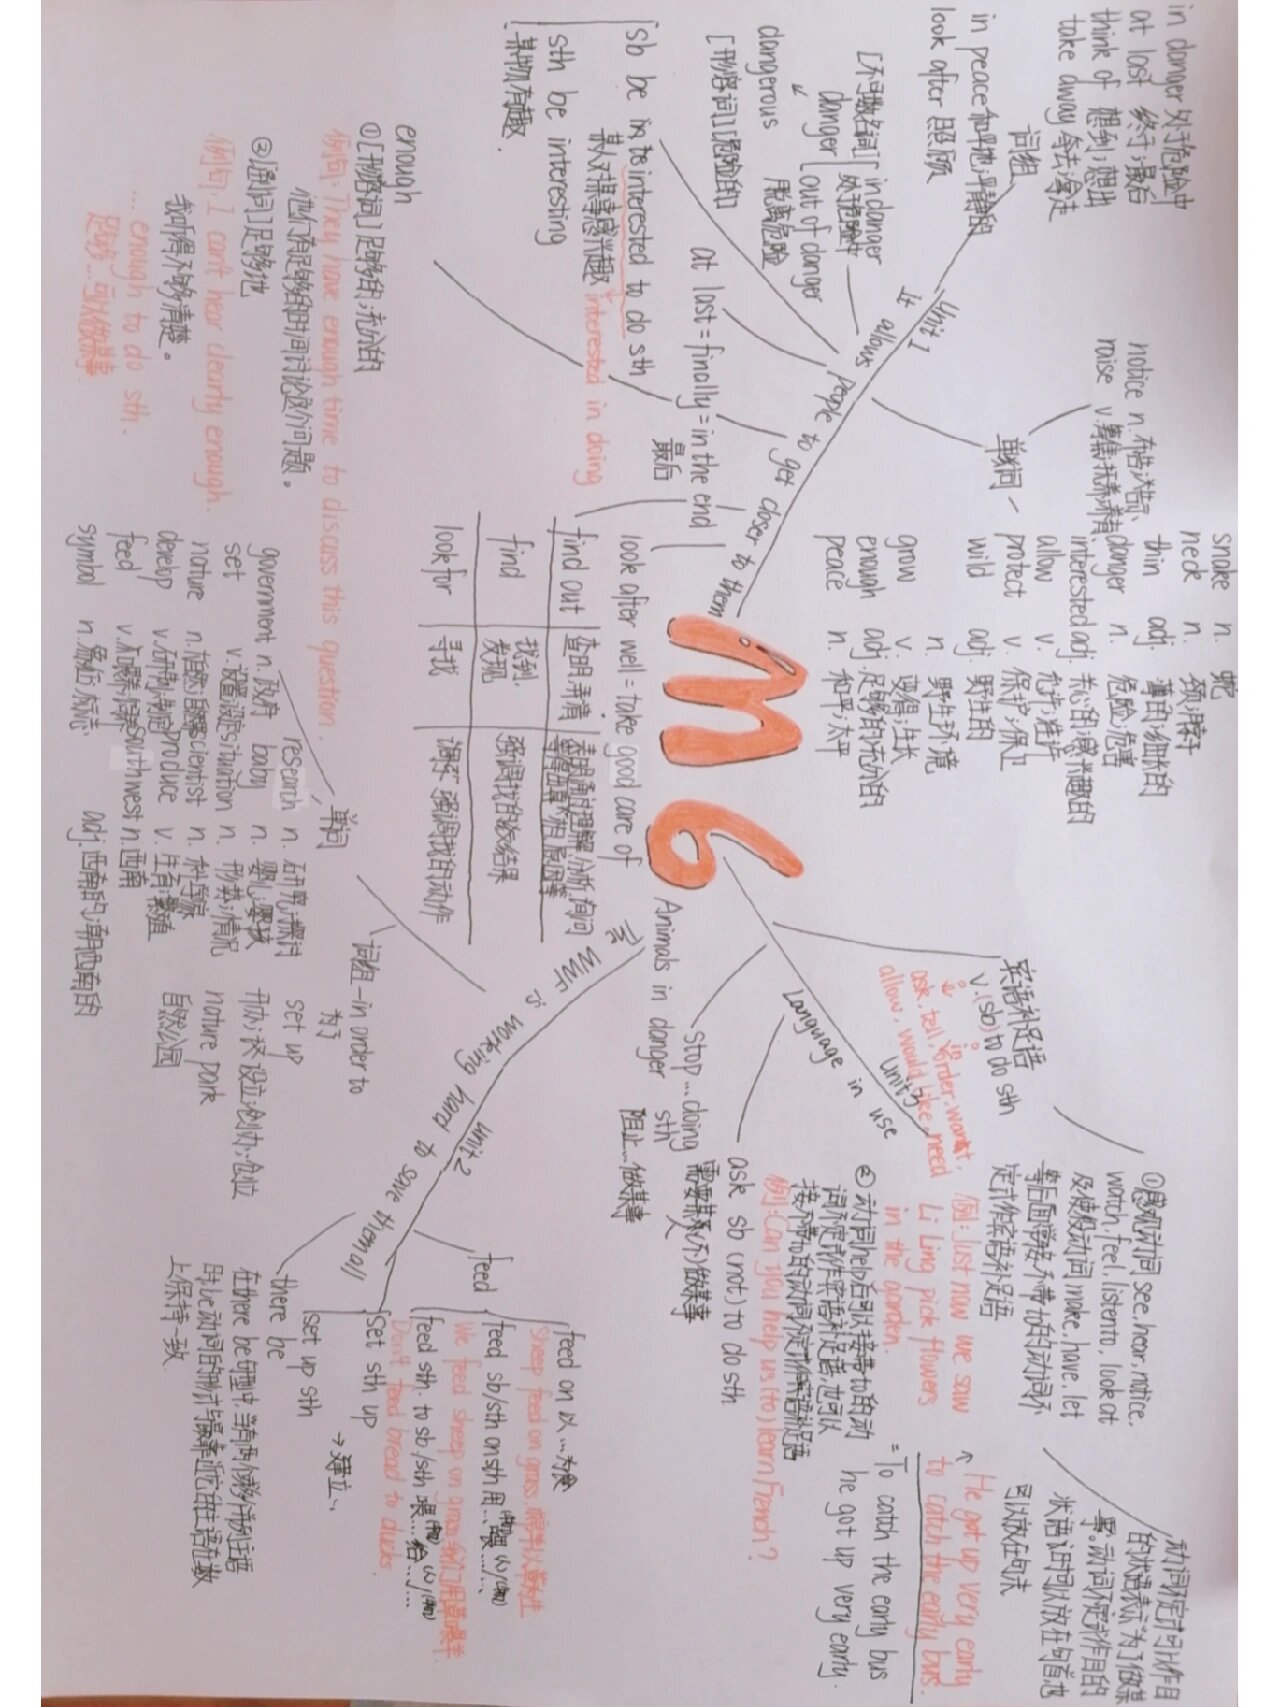 in danger 处于危险中
at last 终于;最后
think of 想到;想出
take away 拿去;淡决
词组
in peace 和平地;平静的
look after 照顾
[不可数名词]
danger
in danger
处于危险中
out of danger
脱离危险
dangerous
[形容词] 危险的
sb be interested to do sth
某人对某事感兴趣 interested in doing
sth be interesting
某物有趣.
at last = finally = in the end
最后
enough
①[形容词] 足够的;充分的
例句: They have enough time to discuss this question.
他们有足够的时间讨论这个问题。
②[副词] 足够地
例句: I can't hear clearly enough.
我听得不够清楚。
... enough to do sth.
足够...可以做某事
Unit 1
It allows people to get closer to them
单词
notice n. 布告;告示;
raise v. 筹集;抚养;养育
snake n. 蛇
neck n. 颈;脖子
thin adj. 薄的;细长的
danger n. 危险;危害
interested adj. 关心的;感兴趣的
allow v. 允许;准许
protect v. 保护;保卫
wild adj. 野生的
n 野生环境
grow v. 变得;生长
enough adj. 足够的;充分的
peace n. 和平;太平
look after well = take good care of
find out 查明,弄清 查明,通过理解,分析,询问等得出真相,原因等
find 找到,发现 强调找的结果
look for 寻找 强调找的动作
M6
Animals in danger
WWF is working hard to save them all
unit 2
单词
government n. 政府
set v. 设置;设定
nature n. 自然;自然界
develop v. 研制;制定
feed v. 喂养;饲养
symbol n. 象征;标志
research n. 研究;探讨
baby n. 婴儿;婴孩
situation n. 形势;情况
scientist n. 科学家
produce v. 生育;繁殖
southwest n. 西南
adj. 西南的;朝西南的
词组 — in order to
为了
set up 开办;设立;创办;
nature park
自然公园
feed
feed on 以...为食
Sheep feed on grass.
feed sb/sth on sth 用...喂...
We feed sheep on grass 我们用草喂羊.
feed sth. to sb/sth 喂...给...
Don't feed bread to ducks.
set sth up
set up sth
→ 建立..
there be
在there be句型中,当有两个或多个并列主语
时,be动词的形式与最靠近它的主语在数
上保持一致.
Language in use
unit 3
stop ... doing sth
阻止...做某事
ask sb (not) to do sth
需要某人(不)做某事
宾语补足语
v.(sb) to do sth
ask, tell, order, want,
allow, would like, need
①感观动词 see, hear, notice,
watch, feel, listen to, look at
及使役动词 make, have, let
等后面常接不带to的动词不
定式作宾语补足语
例: Just now we saw
Li Ling pick flowers
in the garden.
②动词help后可以接带to的动
词不定式作宾语补足语,也可以
接不带to的动词不定式作宾语补足语
例: Can you help us (to) learn French?
动词不定式可以作目
的状语表示为了做某
事。动词不定式作目的
状语时可以放在句首也
可以放在句末
He got up very early
to catch the early bus.
= To catch the early bus
he got up very early.